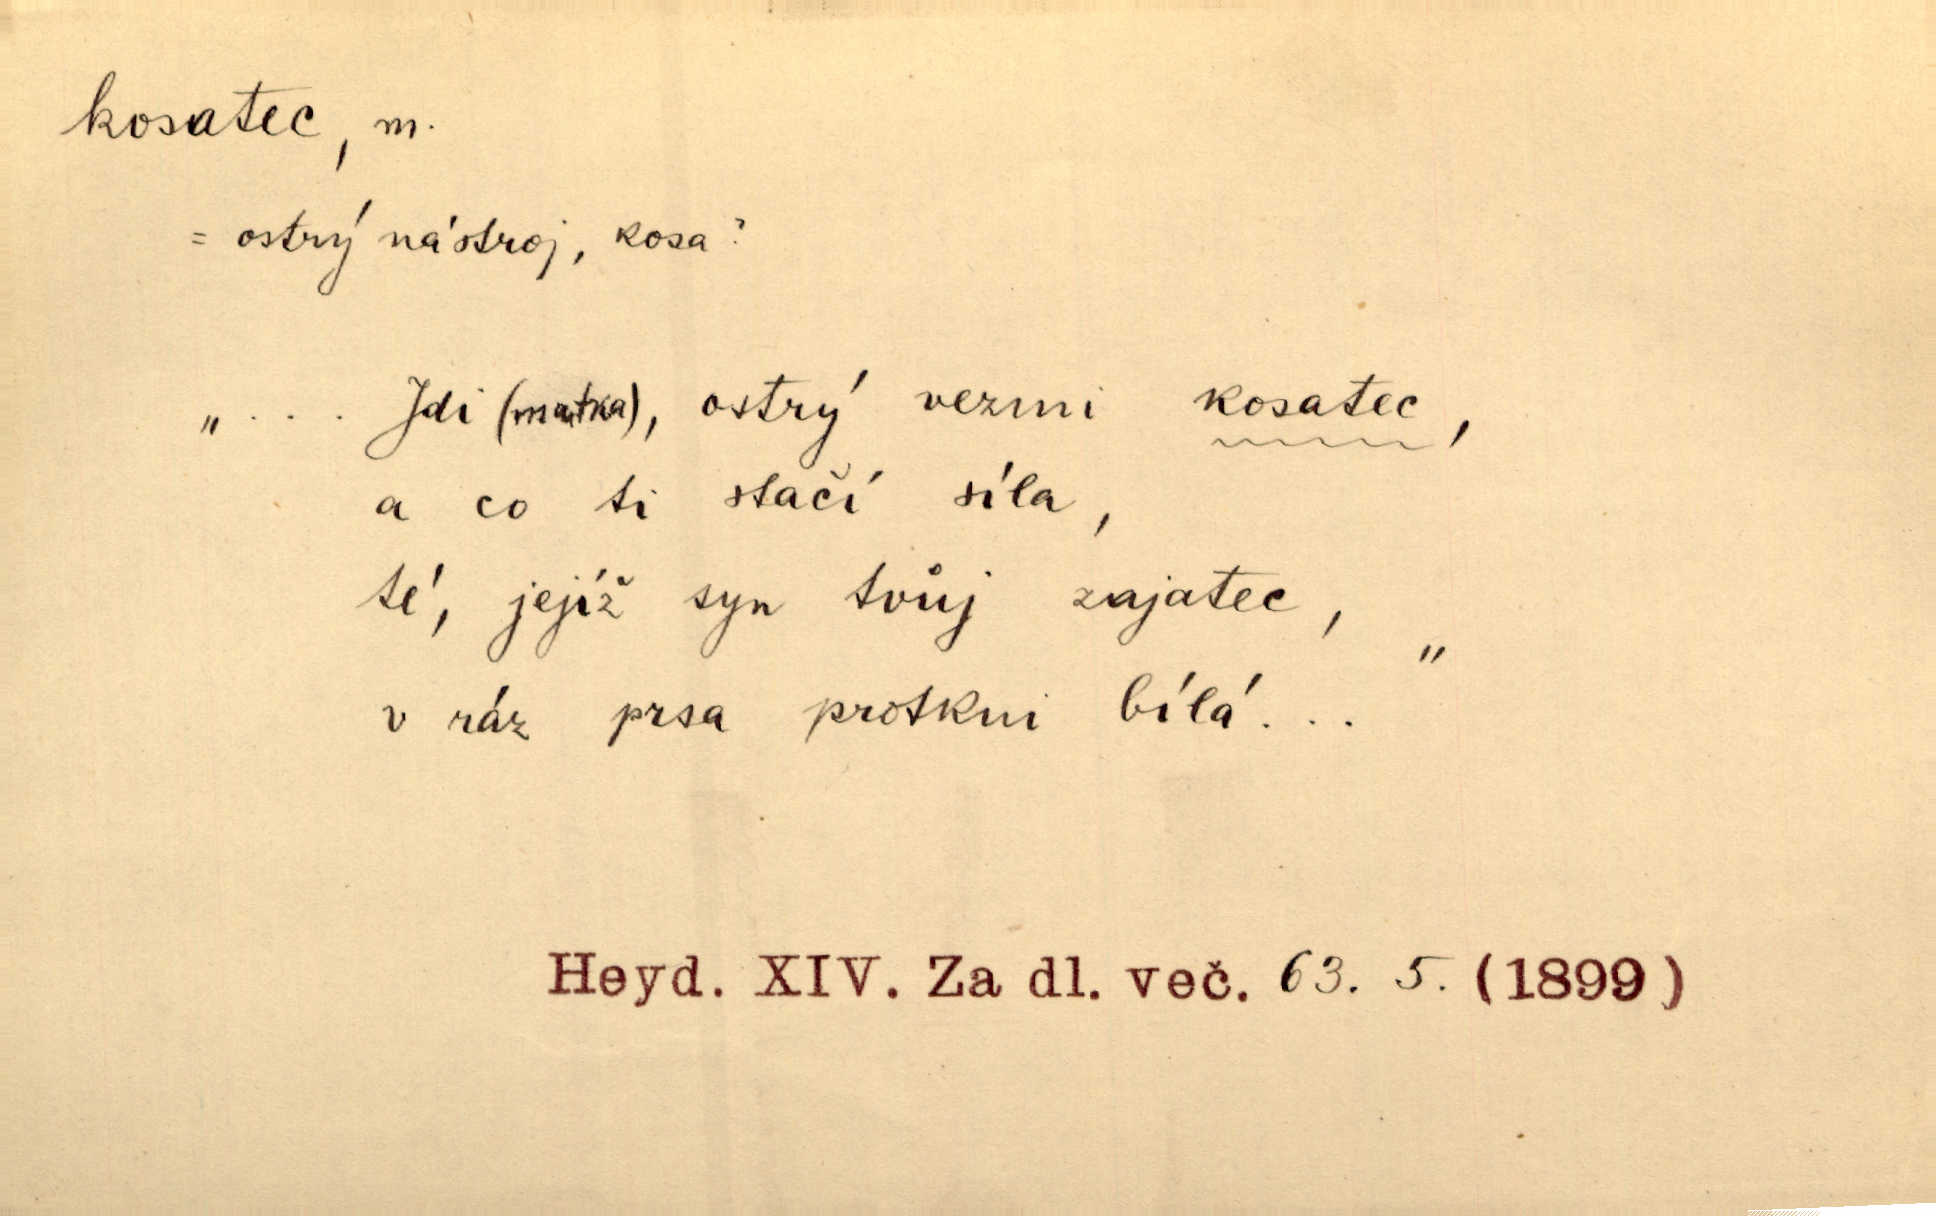 kosatec, m.
= ostrý nástroj, kosa?
„ . . . Jdi (matka), ostrý vezmi kosatec,
a co ti stačí síla,
té, jejíž syn tvůj zajatec,
v ráz prsa protkni bílá . . . "
Heyd. XIV. Za dl. več. 63. 5. (1899)